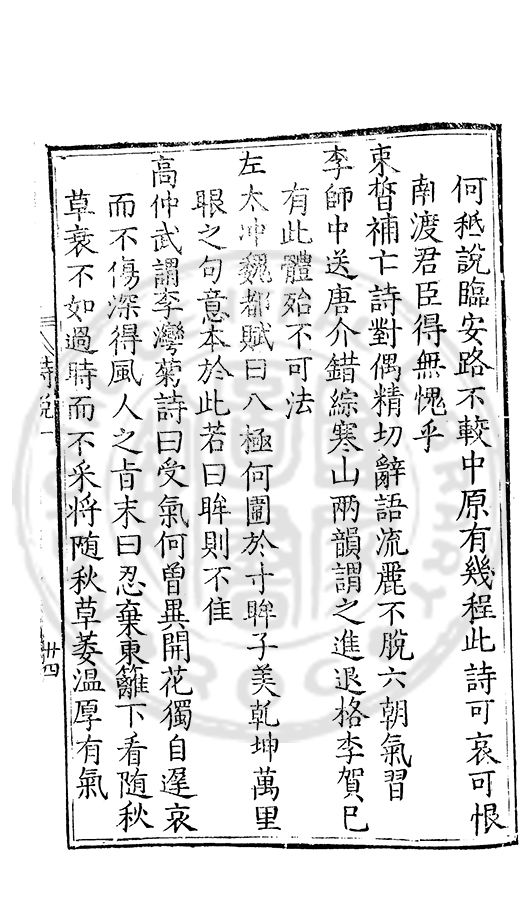 何秪說臨安路不較中原有幾程此詩可哀可恨
南渡君臣得無愧乎
束晳補亡詩對偶精切辭語流麗不脫六朝氣習
李師中送唐介錯綜寒山兩韻謂之進退格李賀已
有此體殆不可法
左太冲魏都賦曰八極何圍於寸眸子美乾坤萬里
眼之句意本於此若曰眸則不佳
高仲武謂李灣菊詩曰受氣何曾異開花獨自遲哀
而不傷深得風人之旨末曰忍棄東籬下看随秋
草衰不如過時而不采将随秋草萎温厚有氣
詩說一
卅四